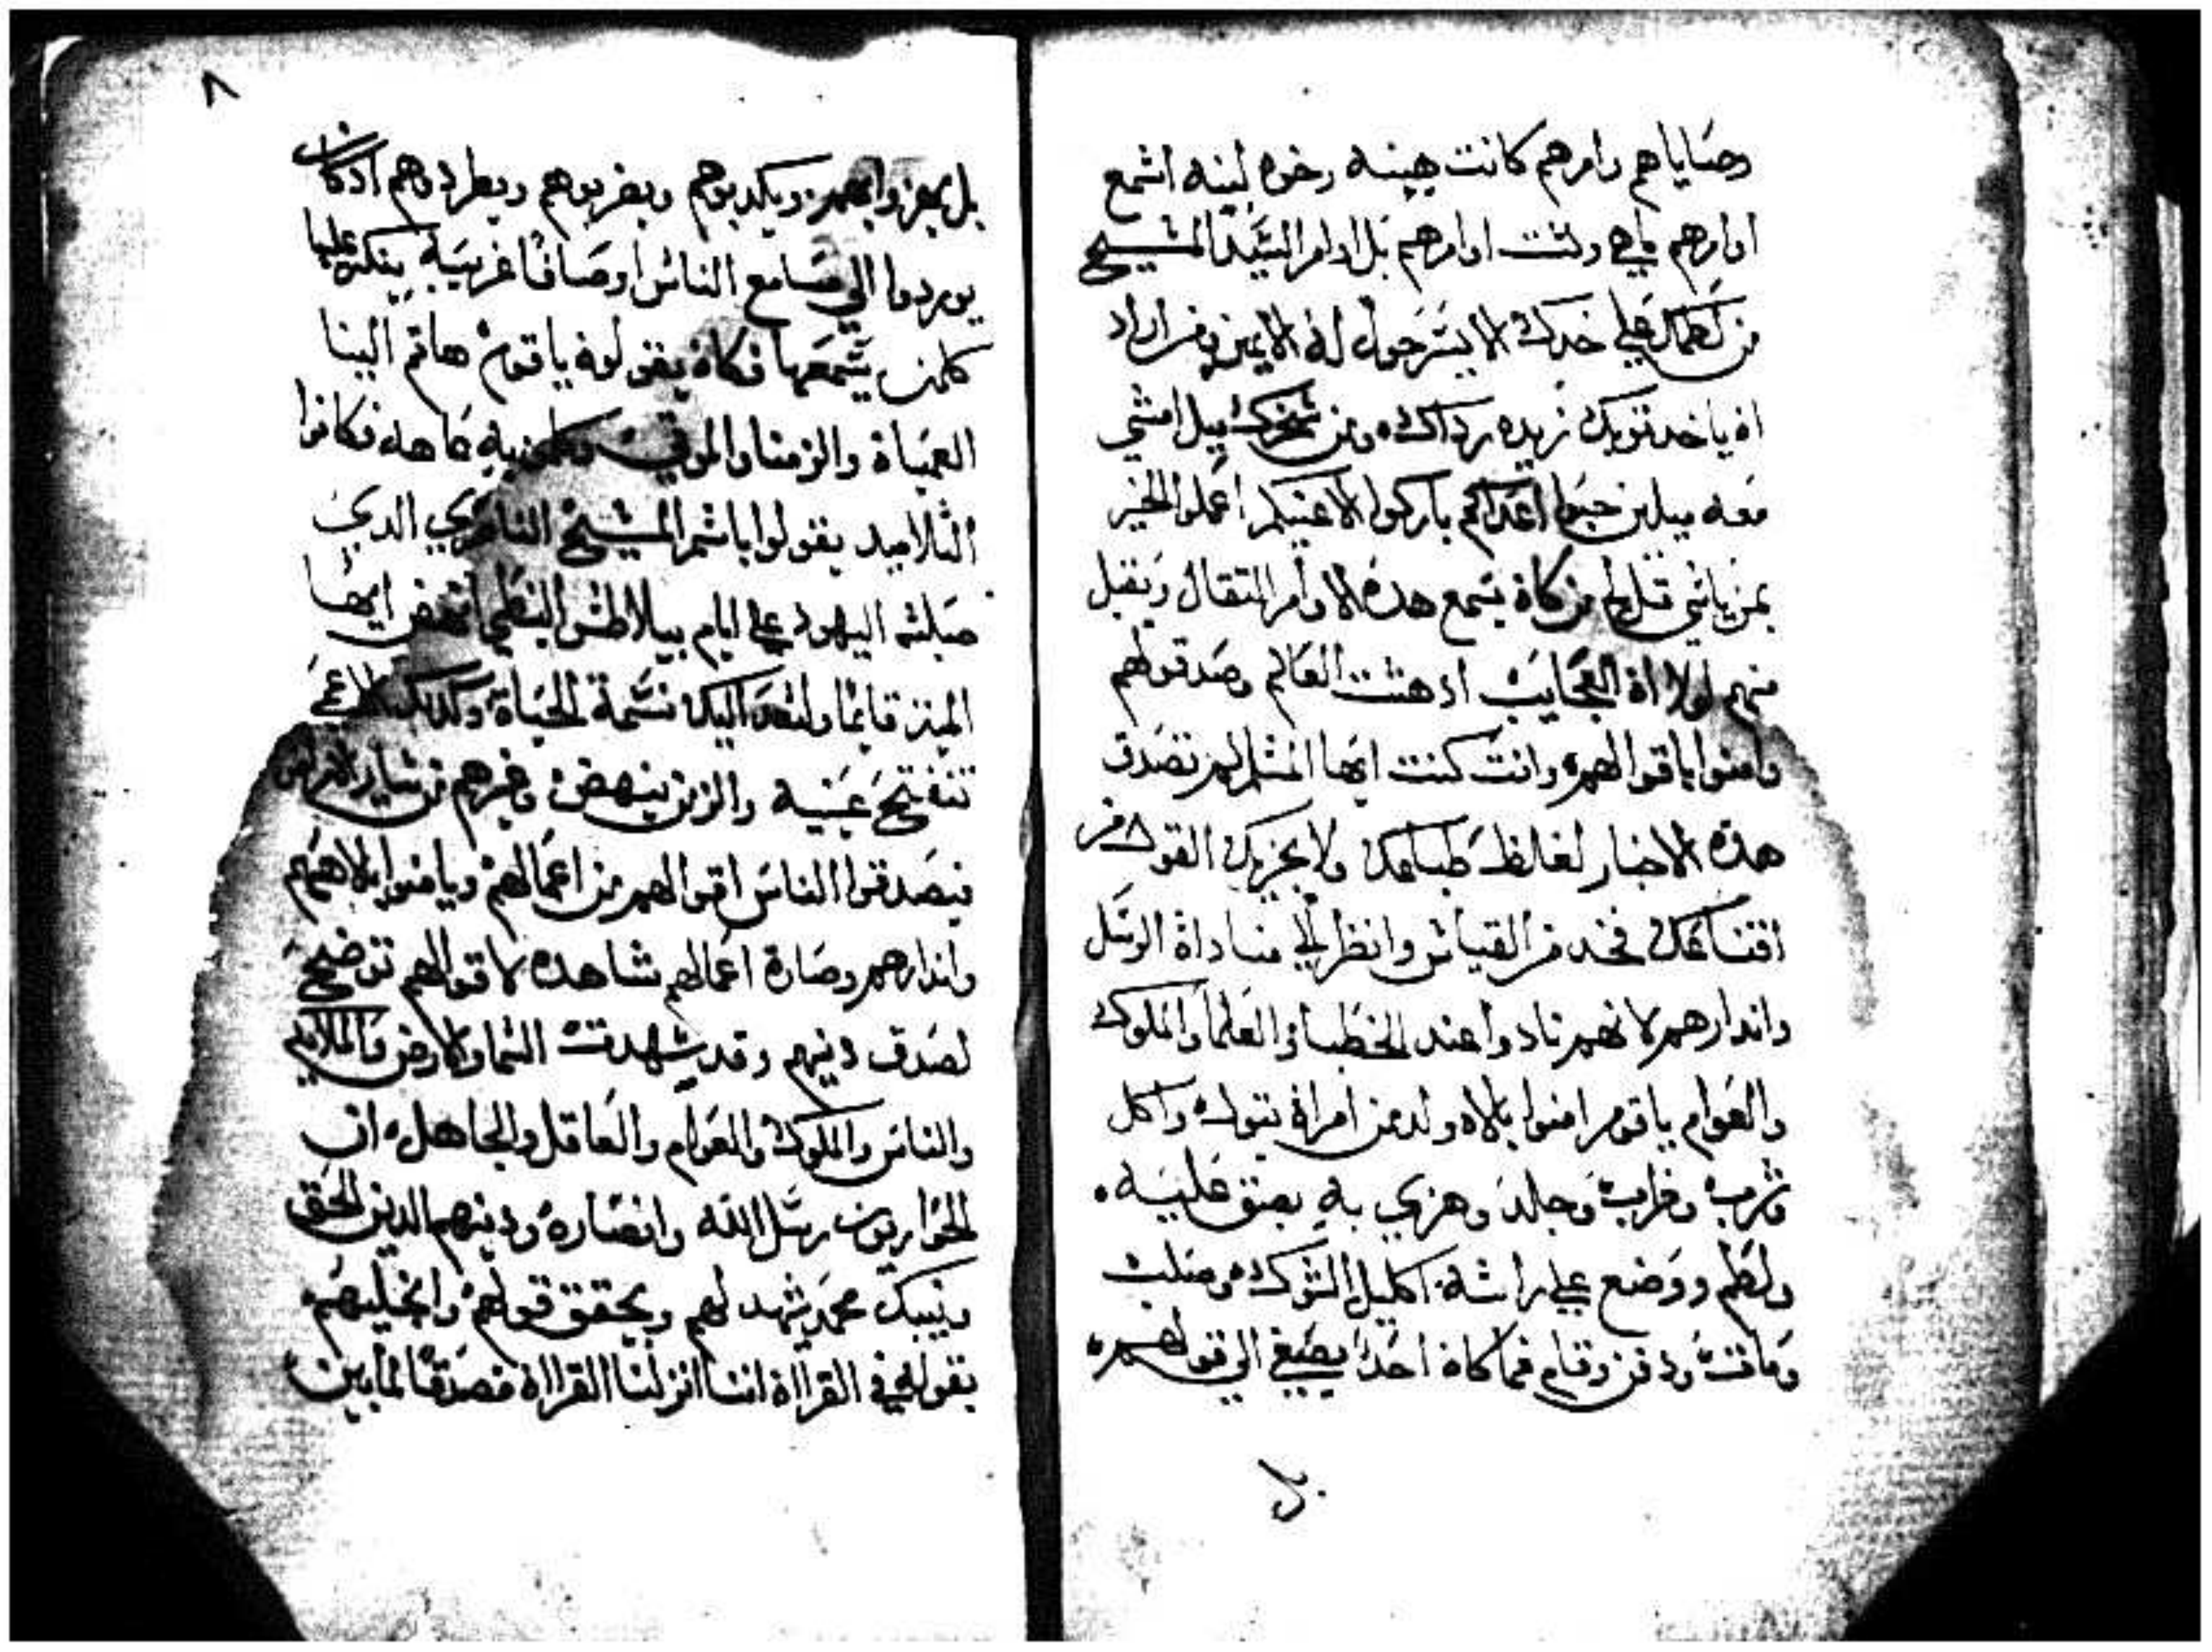 وصاياهم وامرهم كانت هينه رخوه لينه اسمع
اوامرهم ماهي وليست اوامرهم بل اوامر السيد المسيح
من لطمك علي خدك الايسر حول له الايمن ومن اراد
ان ياخد توبك زيده رداك ومن سخرك ميل امشي
معه ميلين حبوا اعداكم باركوا لاعنيكم اعملوا الخير
بمن ياسي قل لي من كان يسمع هده الاوامر التقال ويقبل
منهم لولا ان العجايب ادهشت العالم وصدقولهم
وامنوا باقوالهم وانت كنت ايها المسلم لم تصدق
هده الاخبار لغالظ طباعك ولا يجزيك القول من
اقناعك فخد من القياس وانظر الي مناداة الرسل
واندارهم لانهم نادوا عند الخطبا والعلما والملوك
والعوام ياقوم امنوا بالاه ولد من امراة بتول واكل
وشرب وضرب وجلد وهزي به بصق عليه
ولطم ووضع علي راسه اكليل الشوك وصلب
ومات ودفن وقام فما كان احدا يصغي الي قولهم
بل
٨
بل يهزوا بهم ويكدبوهم ويضربوهم ويطردوهم ادكان
يوردوا الي مسامع الناس اوصافا غريبة ينكر عليها
كلمن يسمعها فكان يقولون ياقوم هاتم الينا
العميان والزمنا والموتي وكلمن به عاهه فكانوا
التلاميد يقولوا باسم المسيح الناصري الدي
صلبته اليهود علي ايام بيلاطس البنطي انهض ايها
الميت قايما ولتعد اليك نسمة الحياة وكدلك الاعمي
تنفتح عينيه والزمن ينهض وغيرهم من ساير الامراض
فيصدقوا الناس اقوالهم من اعمالهم ويامنوا بالاههم
واندارهم وصارة اعمالهم شاهده لاقوالهم توضح
لصدق دينهم وقد شهدت السما والارض والملايكه
والناس والملوك والعوام والعاقل والجاهل ان
الحواريون رسل الله وانصاره ودينهم الدين الحق
ونبيك محمد يشهد لهم ويحقق قولهم وانجيلهم
بقوله في القراان اننا انزلنا القراان مصدقا لما بين